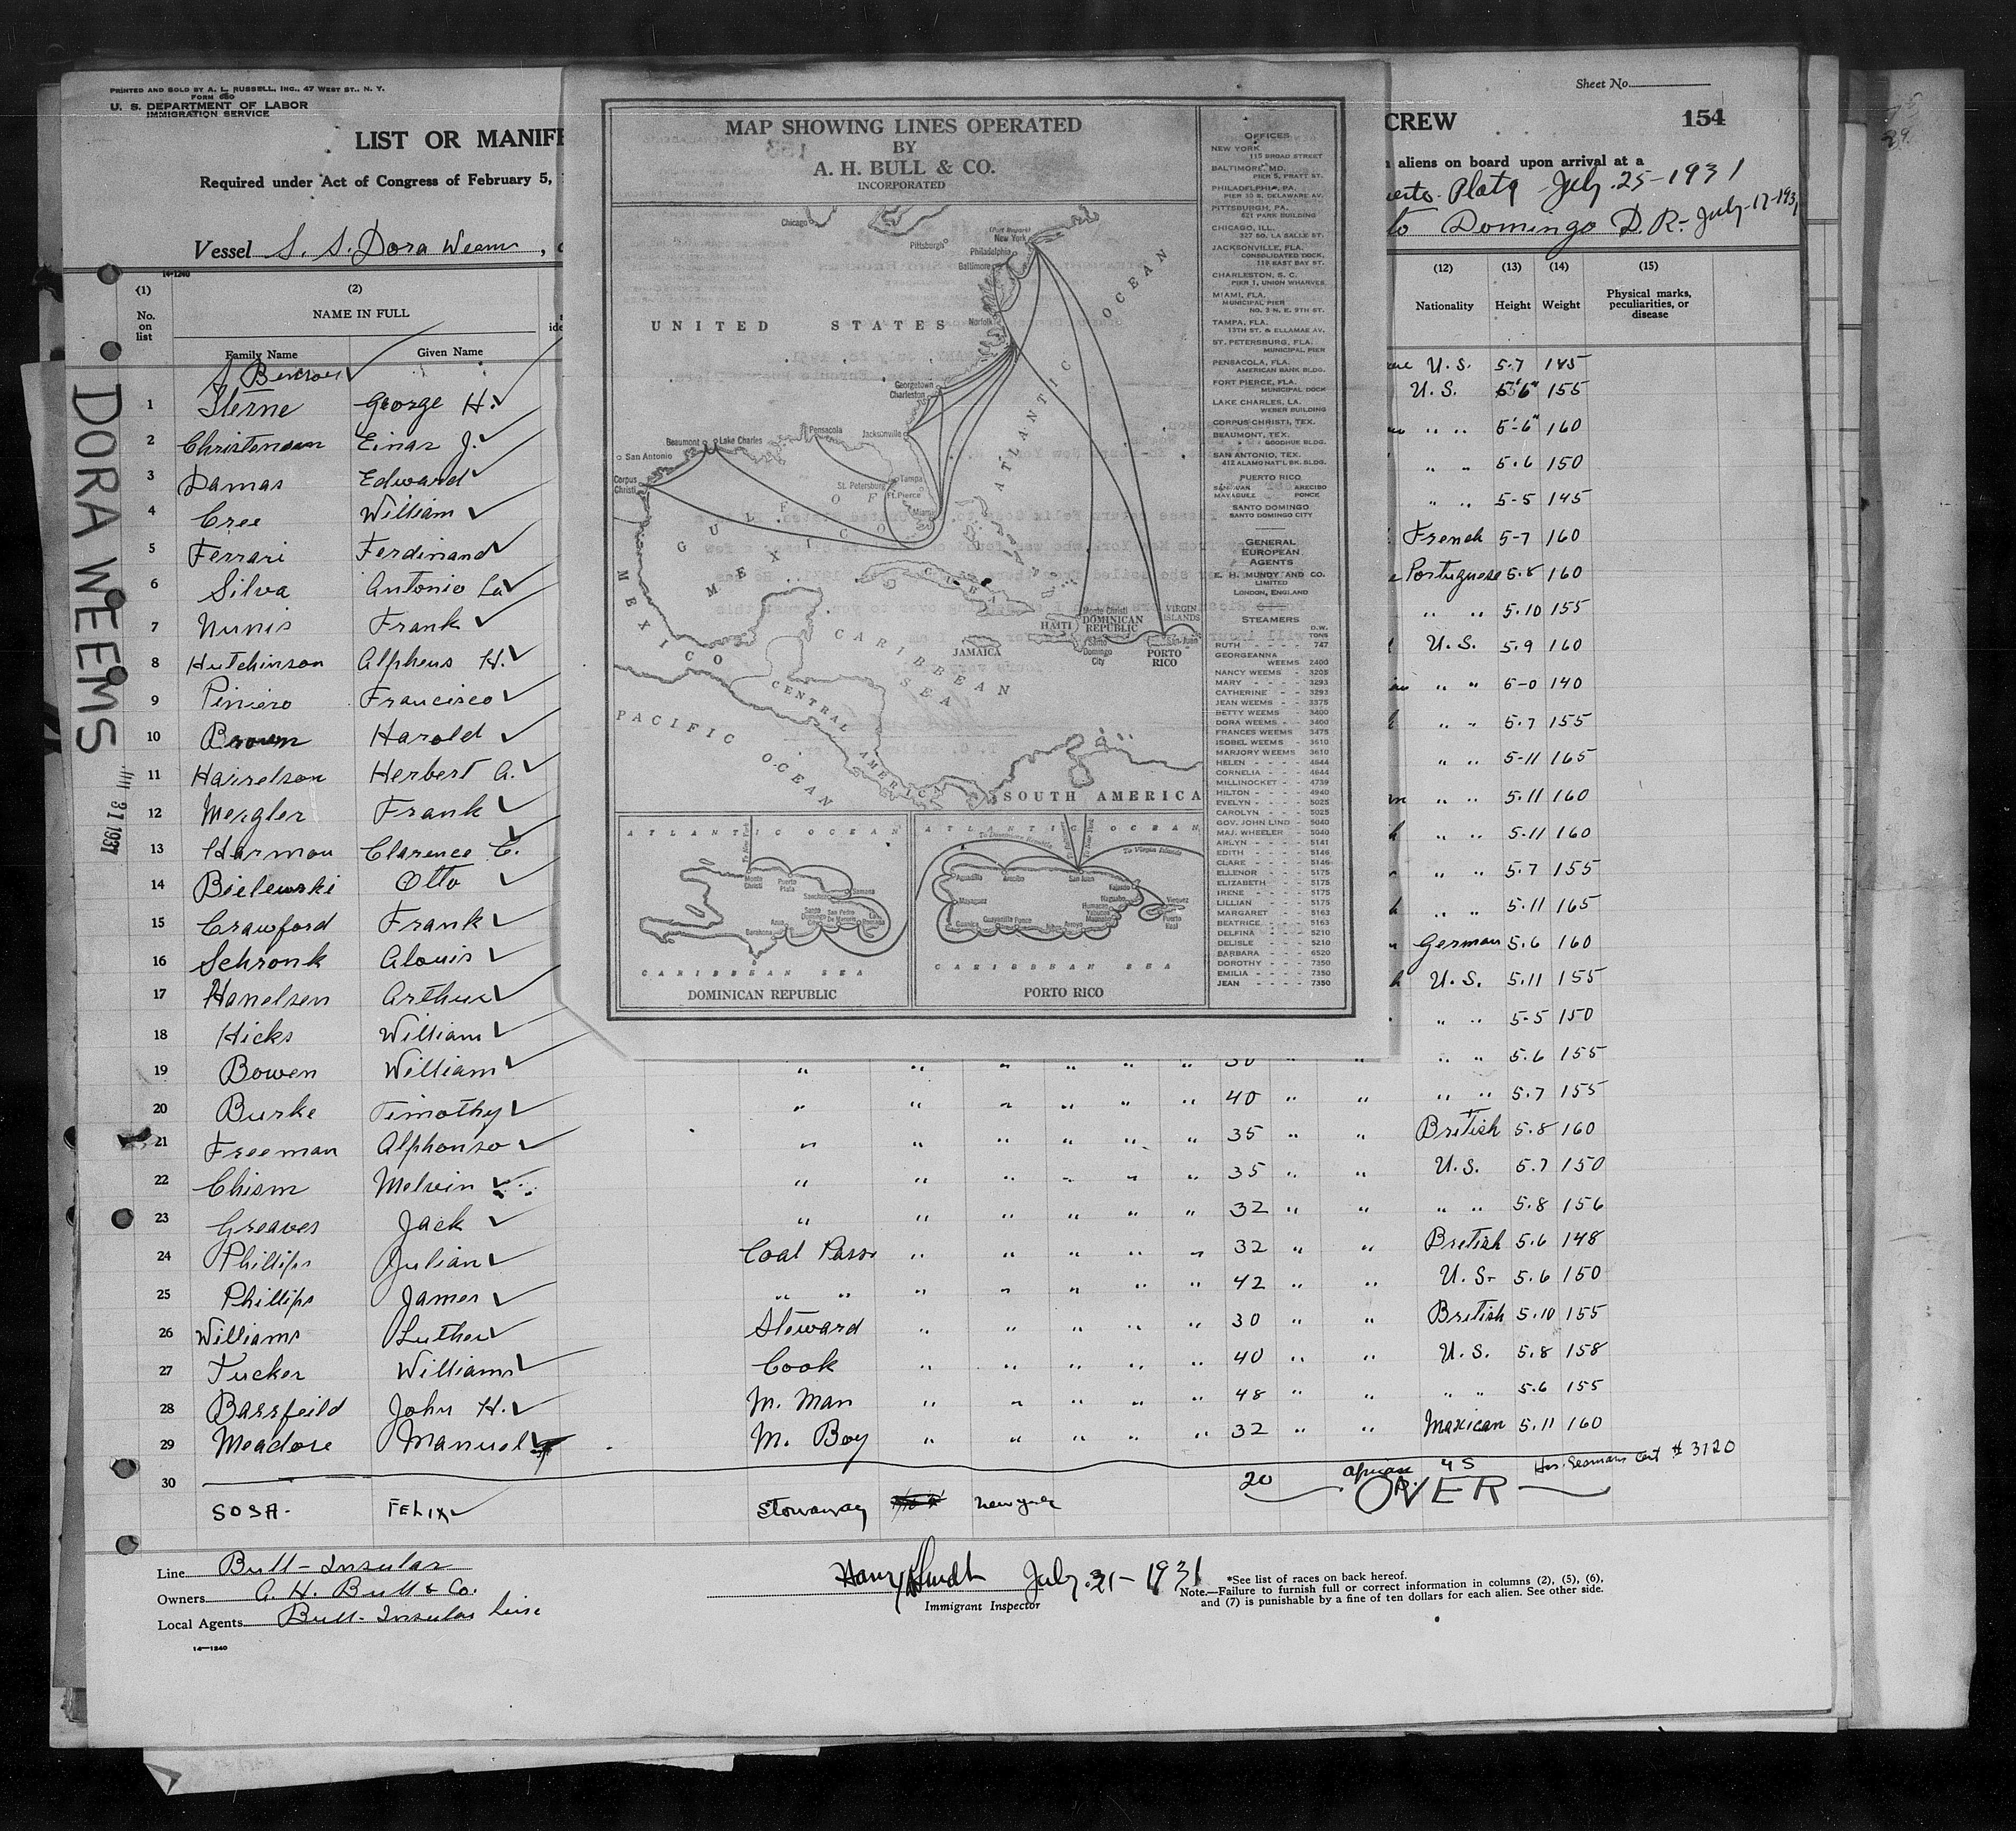 PRINTED AND SOLD BY A. L. RUSSELL, INC., 47 WEST ST., N. Y.
FORM 680
U. S. DEPARTMENT OF LABOR
IMMIGRATION SERVICE
Sheet No.
LIST OR MANIFE
CREW
154
Required under Act of Congress of February 5,
aliens on board upon arrival at a
Plata July 25-1931
Vessel S. S. Dora Weems,
to Domingo D.R. July-17-1931
14-1240
(1) (2) (12) (13) (14) (15)
No. on list NAME IN FULL Nationality Height Weight Physical marks, peculiarities, or disease
Family Name Given Name
U.S. 5.7 145
1 Sterne George H. U.S. 5'6" 155
2 Christensen Einar J. " " 5'-6" 160
3 Damas Edward " " 5.6 150
4 Cree William " " 5-5 145
5 Ferrari Ferdinand French 5-7 160
6 Silva Antonio La Portuguese 5.8 160
7 Nunis Frank " " 5.10 155
8 Hutchinson Alpheus H. U.S. 5.9 160
9 Piniero Francisco " " 6-0 140
10 Brown Harold " " 5.7 155
11 Hairelson Herbert A. " " 5-11 165
12 Mergler Frank " " 5.11 160
13 Harmon Clarence C. " " 5.11 160
14 Bielewski Otto " " 5.7 155
15 Crawford Frank " " 5.11 165
16 Schronk Alouis German 5.6 160
17 Hanelsen Arthur U.S. 5.11 155
18 Hicks William " " 5-5 150
19 Bowen William " " " " " " 30 " " " " 5.6 155
20 Burke Timothy " " " " " " 40 " " " " 5.7 155
21 Freeman Alphonso " " " " " " 35 " " British 5.8 160
22 Chism Melvin " " " " " " 35 " " U.S. 5.7 150
23 Greaves Jack " " " " " " 32 " " " " 5.8 156
24 Phillips Julian Coal Passr " " " " " 32 " " British 5.6 148
25 Phillips James " " " " " " " 42 " " U.S. 5.6 150
26 Williams Luther Steward " " " " " 30 " " British 5.10 155
27 Tucker Williams Cook " " " " " 40 " " U.S. 5.8 158
28 Barsfeild John H. M. Man " " " " " 48 " " " " 5.6 155
29 Meadore Manuel M. Boy " " " " " 32 " " Mexican 5.11 160
30
20 African U S Has Seamans Cert # 3120
SOSA FELIX Stowaway New York
OVER
Line Bull-Insular
Owners A. H. Bull & Co.
Local Agents Bull-Insular Line
14-1240
July 31-1931
Immigrant Inspector
*See list of races on back hereof.
Note.—Failure to furnish full or correct information in columns (2), (5), (6),
and (7) is punishable by a fine of ten dollars for each alien. See other side.
DORA WEEMS
JUL 31 1931
MAP SHOWING LINES OPERATED
BY
A. H. BULL & CO.
INCORPORATED
Chicago
Pittsburgh
(Port Newark)
New York
Philadelphia
Baltimore
Norfolk
UNITED STATES
ATLANTIC OCEAN
Georgetown
Charleston
Beaumont
Lake Charles
Pensacola
Jacksonville
San Antonio
Corpus Christi
St. Petersburg
Tampa
Ft. Pierce
Miami
GULF OF MEXICO
MEXICO
CUBA
HAITI
Monte Christi
DOMINICAN REPUBLIC
Santo Domingo City
VIRGIN ISLANDS
San Juan
PORTO RICO
JAMAICA
CARIBBEAN SEA
CENTRAL AMERICA
PACIFIC OCEAN
SOUTH AMERICA
ATLANTIC OCEAN
To New York
Monte Christi
Puerto Plata
Samana
Sanchez
Santo Domingo City
San Pedro De Macoris
La Romana
Azua
Barahona
CARIBBEAN SEA
DOMINICAN REPUBLIC
ATLANTIC OCEAN
To Dominican Republic
To New York
To Virgin Islands
Aguadilla
Arecibo
San Juan
Fajardo
Mayaguez
Naguabo
Humacao
Yabucoa
Maunabo
Vieques
Puerto Real
Guanica
Guayanilla
Ponce
Arroyo
CARIBBEAN SEA
PORTO RICO
OFFICES
NEW YORK
115 BROAD STREET
BALTIMORE, MD.
PIER 5, PRATT ST.
PHILADELPHIA, PA.
PIER 38 S. DELAWARE AV.
PITTSBURGH, PA.
621 PARK BUILDING
CHICAGO, ILL.
327 SO. LA SALLE ST.
JACKSONVILLE, FLA.
CONSOLIDATED DOCK,
119 EAST BAY ST.
CHARLESTON, S. C.
PIER 1, UNION WHARVES
MIAMI, FLA.
MUNICIPAL PIER
NO. 3 N. E. 9TH ST.
TAMPA, FLA.
13TH ST. & ELLAMAE AV.
ST. PETERSBURG, FLA.
MUNICIPAL PIER
PENSACOLA, FLA.
AMERICAN BANK BLDG.
FORT PIERCE, FLA.
MUNICIPAL DOCK
LAKE CHARLES, LA.
WEBER BUILDING
CORPUS CHRISTI, TEX.
BEAUMONT, TEX.
GOODHUE BLDG.
SAN ANTONIO, TEX.
412 ALAMO NAT'L BK. BLDG.
PUERTO RICO
SAN JUAN ARECIBO
MAYAGUEZ PONCE
SANTO DOMINGO
SANTO DOMINGO CITY
GENERAL
EUROPEAN
AGENTS
E. H. MUNDY AND CO.
LIMITED
LONDON, ENGLAND
STEAMERS
D.W. TONS
RUTH 747
GEORGEANNA WEEMS 2400
NANCY WEEMS 3205
MARY 3293
CATHERINE 3293
JEAN WEEMS 3375
BETTY WEEMS 3400
DORA WEEMS 3400
FRANCES WEEMS 3475
ISOBEL WEEMS 3610
MARJORY WEEMS 3610
HELEN 4644
CORNELIA 4644
MILLINOCKET 4739
HILTON 4940
EVELYN 5025
CAROLYN 5025
GOV. JOHN LIND 5040
MAJ. WHEELER 5040
ARLYN 5141
EDITH 5146
CLARE 5146
ELLENOR 5175
ELIZABETH 5175
IRENE 5175
LILLIAN 5175
MARGARET 5163
BEATRICE 5163
DELFINA 5210
DELISLE 5210
BARBARA 6520
DOROTHY 7350
EMILIA 7350
JEAN 7350